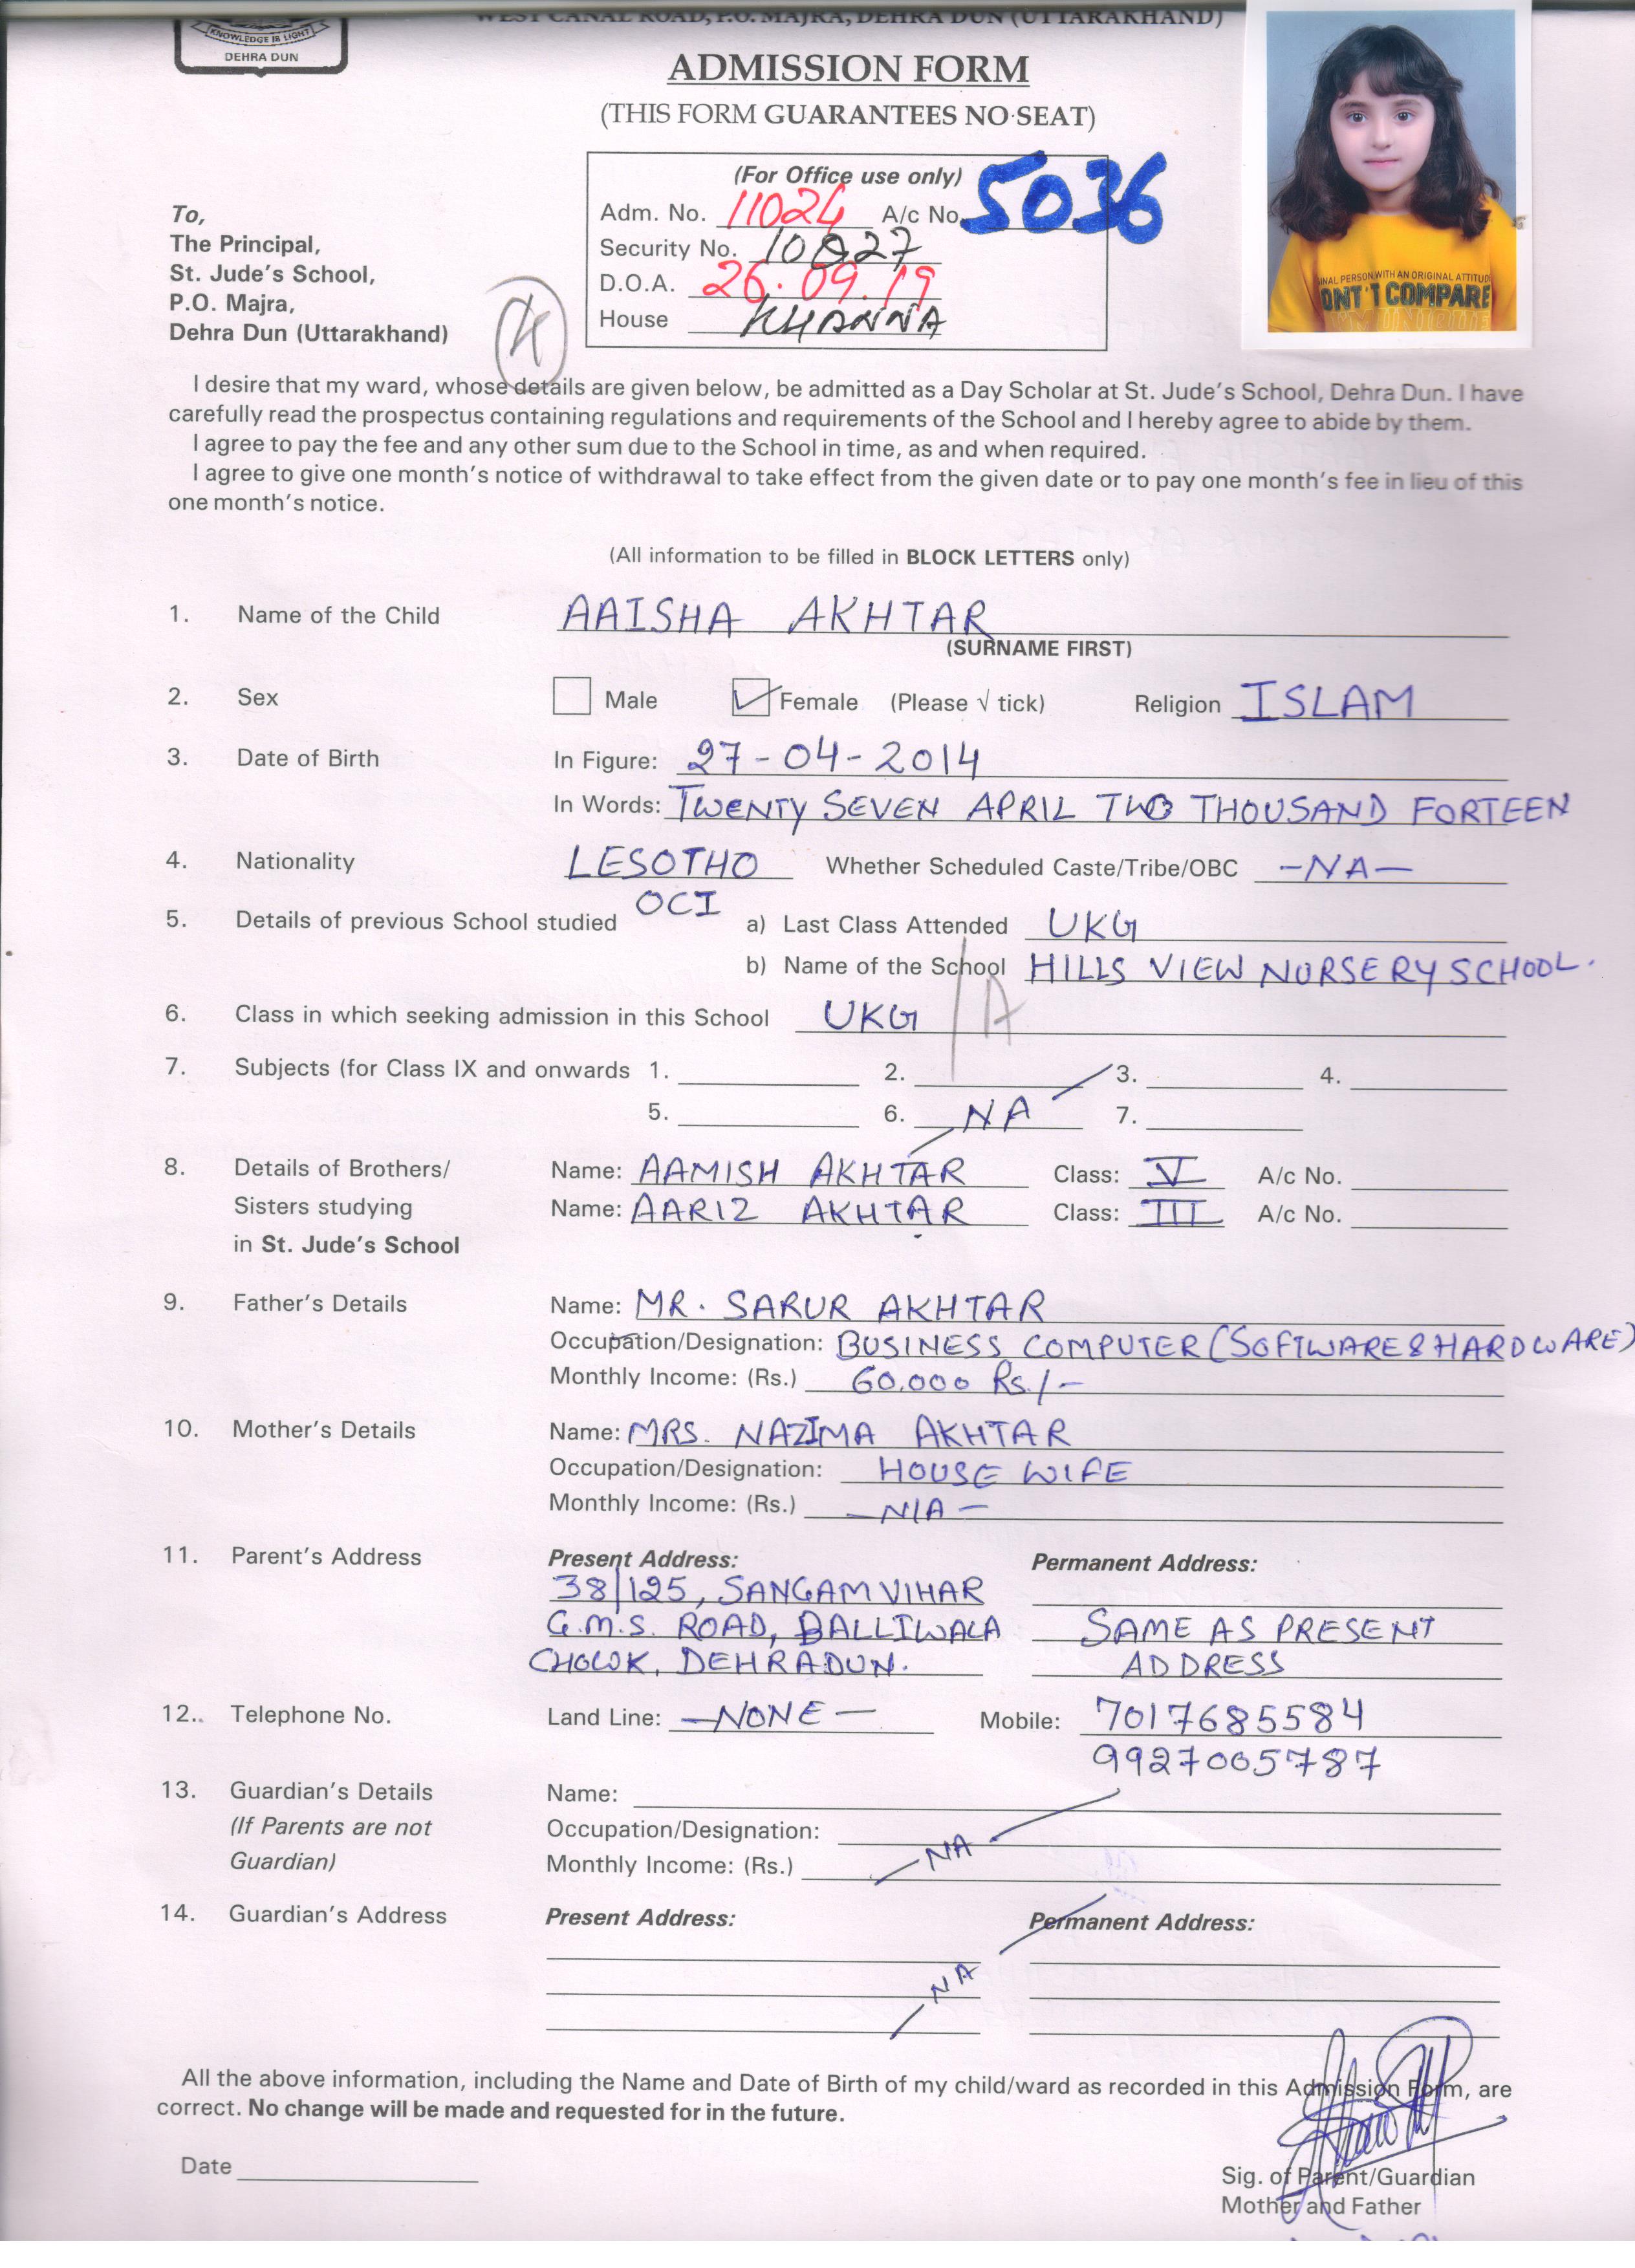 WEST CANAL ROAD, P.O. MAJRA, DEHRA DUN (UTTARAKHAND)
KNOWLEDGE IS LIGHT
DEHRA DUN
ADMISSION FORM
(THIS FORM GUARANTEES NO SEAT)
(For Office use only)
Adm. No. 11024 A/c No. 5036
Security No. 10027
D.O.A. 26.09.19
House KHANNA
To,
The Principal,
St. Jude's School,
P.O. Majra,
Dehra Dun (Uttarakhand)
INAL PERSON WITH AN ORIGINAL ATTITUD
ONT'T COMPARE
I desire that my ward, whose details are given below, be admitted as a Day Scholar at St. Jude's School, Dehra Dun. I have
carefully read the prospectus containing regulations and requirements of the School and I hereby agree to abide by them.
I agree to pay the fee and any other sum due to the School in time, as and when required.
I agree to give one month's notice of withdrawal to take effect from the given date or to pay one month's fee in lieu of this
one month's notice.
(All information to be filled in BLOCK LETTERS only)
1. Name of the Child AAISHA AKHTAR
(SURNAME FIRST)
2. Sex Male Female (Please √ tick) Religion ISLAM
3. Date of Birth In Figure: 27-04-2014
In Words: TWENTY SEVEN APRIL TWO THOUSAND FORTEEN
4. Nationality LESOTHO Whether Scheduled Caste/Tribe/OBC -NA-
OCI
5. Details of previous School studied a) Last Class Attended UKG
b) Name of the School HILLS VIEW NURSERY SCHOOL.
6. Class in which seeking admission in this School UKG A
7. Subjects (for Class IX and onwards 1. 2. 3. 4.
5. 6. NA 7.
8. Details of Brothers/ Name: AAMISH AKHTAR Class: V A/c No.
Sisters studying Name: AARIZ AKHTAR Class: III A/c No.
in St. Jude's School
9. Father's Details Name: MR. SARUR AKHTAR
Occupation/Designation: BUSINESS COMPUTER (SOFTWARE & HARDWARE)
Monthly Income: (Rs.) 60,000 Rs./-
10. Mother's Details Name: MRS. NAZIMA AKHTAR
Occupation/Designation: HOUSE WIFE
Monthly Income: (Rs.) -N/A-
11. Parent's Address Present Address: Permanent Address:
38/125, SANGAM VIHAR
G.M.S. ROAD, BALLIWALA SAME AS PRESENT
CHOWK, DEHRADUN. ADDRESS
12. Telephone No. Land Line: -NONE- Mobile: 7017685584
9927005787
13. Guardian's Details Name:
(If Parents are not Occupation/Designation:
Guardian) Monthly Income: (Rs.) NA
14. Guardian's Address Present Address: Permanent Address:
NA
All the above information, including the Name and Date of Birth of my child/ward as recorded in this Admission Form, are
correct. No change will be made and requested for in the future.
Date
Sig. of Parent/Guardian
Mother and Father